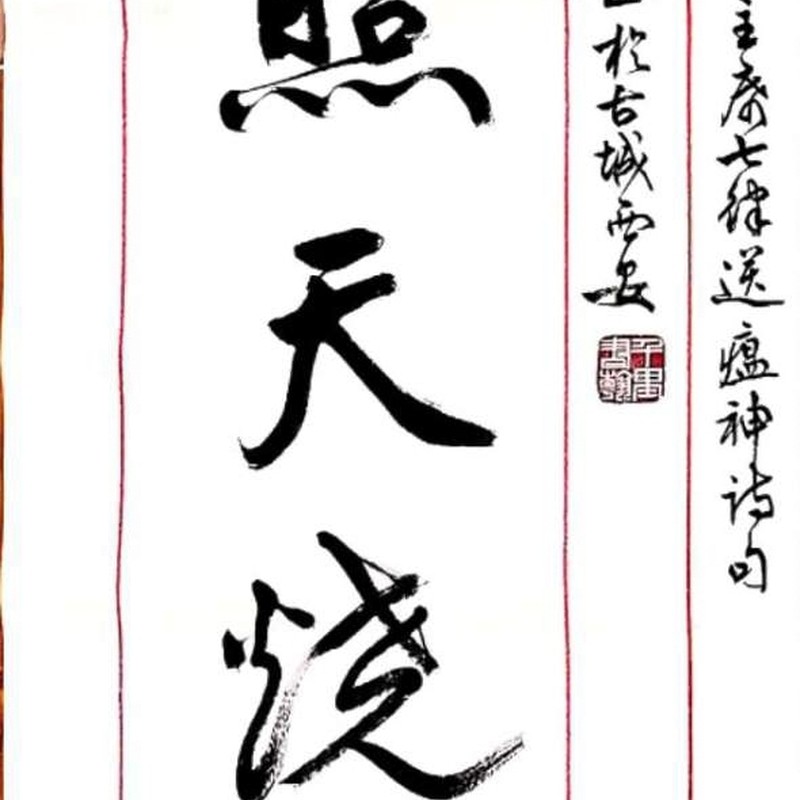 主席七律送瘟神诗句
於古城西安
照天烧